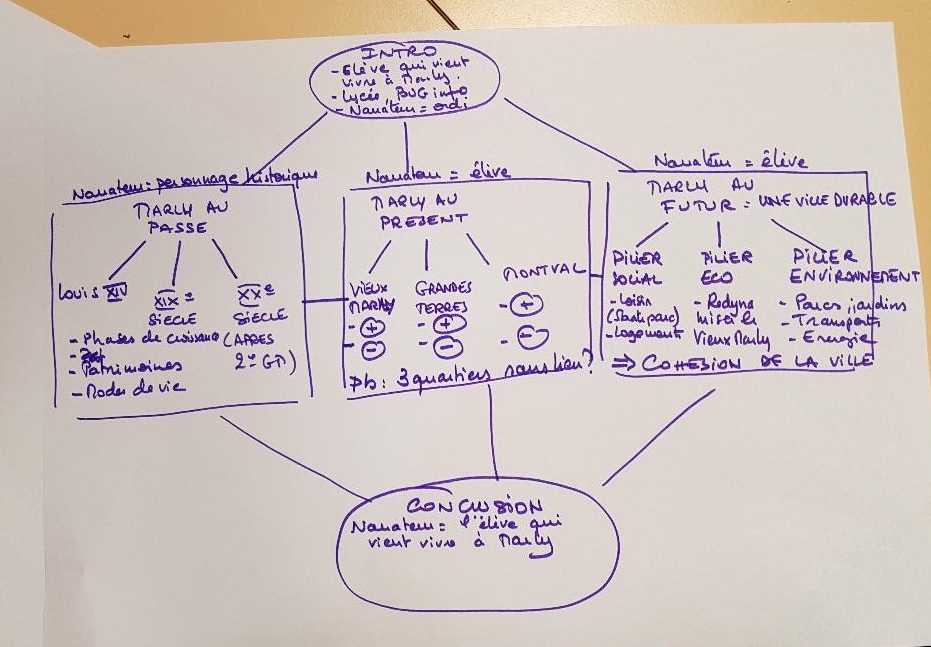 INTRO
- Elève qui vient
vivre à Marly.
- Lycée, BUG info
- Narrateur = ordi
Narrateur = personnage historique
MARLY AU
PASSE
Louis XIV
XIXe
SIECLE
XXe
SIECLE
(APRES
2e GM)
- Phases de croissance
- Patrimoines
- Modes de vie
Narrateur = élève
MARLY AU
PRESENT
VIEUX
MARLY
- +
- -
GRANDES
TERRES
- +
- -
MONTVAL
- +
- -
Pb : 3 quartiers sans lien ?
Narrateur = élève
MARLY AU
FUTUR = UNE VILLE DURABLE
PILIER
SOCIAL
- Loisir
(Skate parc)
- Logement
PILIER
ECO
- Redyna
miser le
Vieux Marly
PILIER
ENVIRONNEMENT
- Parcs, jardins
- Transports
- Energie
⇒ COHESION DE LA VILLE
CONCLUSION
Narrateur = l'élève qui
vient vivre à Marly